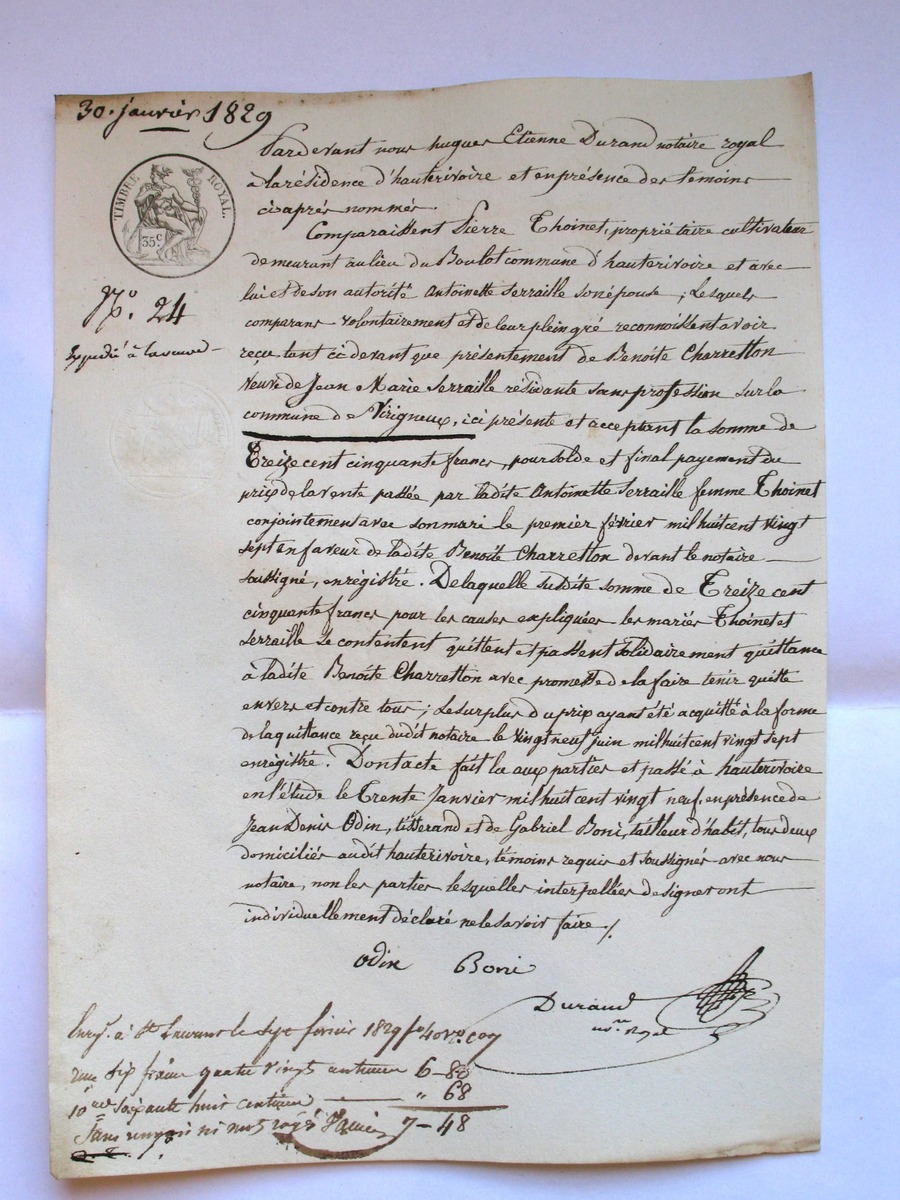 30. janvier 1829
TIMBRE ROYAL.
35 c
N.o 24
Expédié à la veuve
Pardevant nous hugues Etienne Durand notaire royal
à la résidence d'hauterivoire et en présence des témoins
cy après nommés.
Comparaissent Pierre Thoinet, propriétaire cultivateur
demeurant au lieu du Boulot commune d'hauterivoire et avec
lui et de son autorité Antoinette Serraille son épouse ; Lesquels
comparans volontairement et de leur plein gré reconnoissent avoir
reçu tant ci devant que présentement de Benoîte Charretton
veuve de Jean Marie Serraille résidante sans profession sur la
commune de Virigneux, ici présente et acceptant la somme de
Treize cent cinquante francs, pour solde et final payement du
prix de la vente passée par ladite Antoinette Serraille femme Thoinet
conjointement avec son mari le premier février mil huit cent vingt
sept en faveur de ladite Benoîte Charretton devant le notaire
soussigné, enrégistré. De laquelle susdite somme de Treize cent
cinquante francs pour les causes expliquées les mariés Thoinet et
Serraille se contentent quittent et passent solidairement quittance
à ladite Benoîte Charretton avec promesse de la faire tenir quitte
envers et contre tous ; Le surplus du prix ayant été acquitté à la forme
de la quittance reçu dudit notaire le vingt neuf juin mil huit cent vingt sept
enrégistré. Dont acte fait lu aux parties et passé à hauterivoire
en l'étude le Trente Janvier mil huit cent vingt neuf, en présence de
Jean Denis Odin, tisserand et de Gabriel Boni, tailleur d'habit, tous deux
domiciliés audit hauterivoire, témoins requis et soussignés avec nous
notaire, non les parties lesquelles interpellées de signer ont
individuellement déclaré ne le savoir faire ./.
Odin Boni
Durand
no.re royal
Enreg. à St Laurent le Sept février 1829 fo 40 vo. C 07
reçu Six francs quatre vingts centimes 6-80
10me Soixante huit centimes " 68
Sans renvoi ni mots rayés 7-48